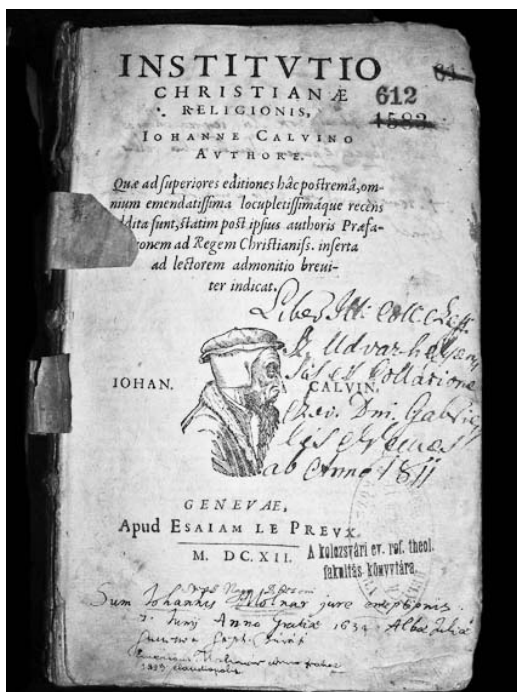 INSTITVTIO
CHRISTIANÆ
RELIGIONIS,
IOHANNE CALVINO
AVTHORE.
612
1583
Quæ ad superiores editiones hâc postremâ, om-
nium emendatissima locupletissimáque recèns
ddita sunt, statim post ipsius authoris Præfa-
onem ad Regem Christianiss. inserta
ad lectorem admonitio brevi-
ter indicat.
Liber Ill. Coll.
Udvarhely
ex Collatione
Rev. Dni. Gabrie
lis
ab Anno 1811
IOHAN. CALVIN.
GENEVAE,
Apud ESAIAM LE PREVX.
M. DC. XII.
A kolozsvári ev. ref. theol.
fakultás könyvtára.
Sum Johannis Molnar jure emptionis.
Junij Anno Gratiæ 1634 Albæ Juliæ